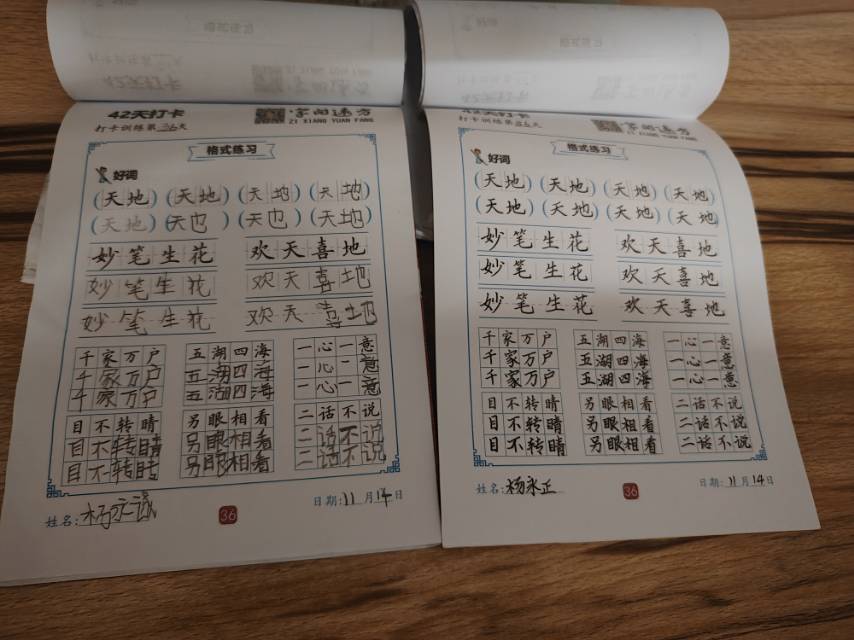 42天打卡
字向远方
打卡训练第36天
ZI XIANG YUAN FANG
格式练习
好词
(天地) (天地) (天地) (天地)
(天地) (天也) (天也) (天地)
妙笔生花 欢天喜地
妙笔生花 欢天喜地
妙笔生花 欢天喜地
千家万户 五湖四海 一心一意
千家万户 五湖四海 一心一意
千家万户 五湖四海 一心一意
目不转睛 另眼相看 二话不说
目不转睛 另眼相看 二话不说
目不转睛 另眼相看 二话不说
姓名:杨永诚 36 日期:11月14日
42天打卡
字向远方
打卡训练第36天
ZI XIANG YUAN FANG
格式练习
好词
(天地) (天地) (天地) (天地)
(天地) (天地) (天地) (天地)
妙笔生花 欢天喜地
妙笔生花 欢天喜地
妙笔生花 欢天喜地
千家万户 五湖四海 一心一意
千家万户 五湖四海 一心一意
千家万户 五湖四海 一心一意
目不转睛 另眼相看 二话不说
目不转睛 另眼相看 二话不说
目不转睛 另眼相看 二话不说
姓名:杨永正 36 日期:11月14日